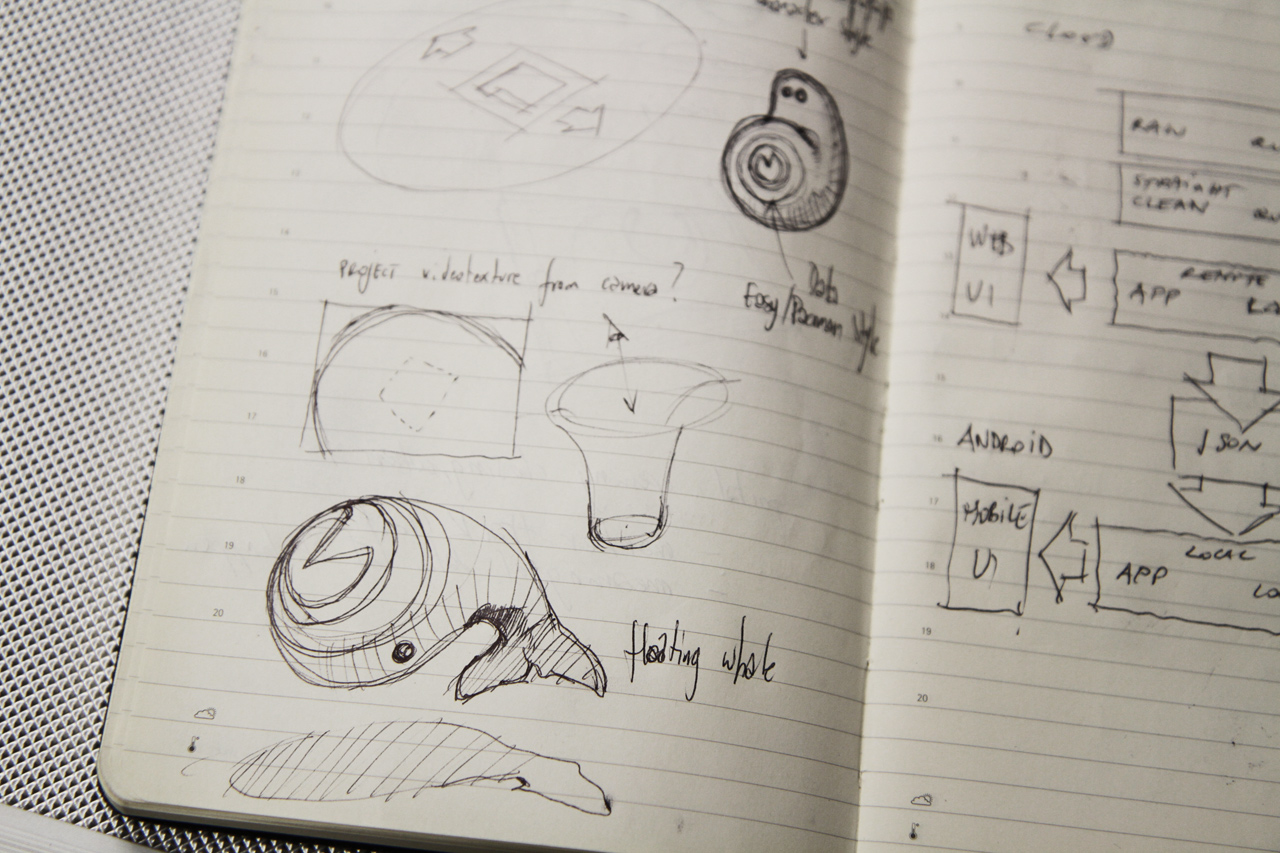 style
PROJECT videotexture from camera?
Data
Easy/Pacman style
floating whale
12
13
14
15
16
17
18
19
20
CLOUD
RAW
STRAIGHT
CLEAN
WEB
UI
REMOTE
APP
JSON
ANDROID
MOBILE
UI
LOCAL
APP
LO
15
16
17
18
19
20